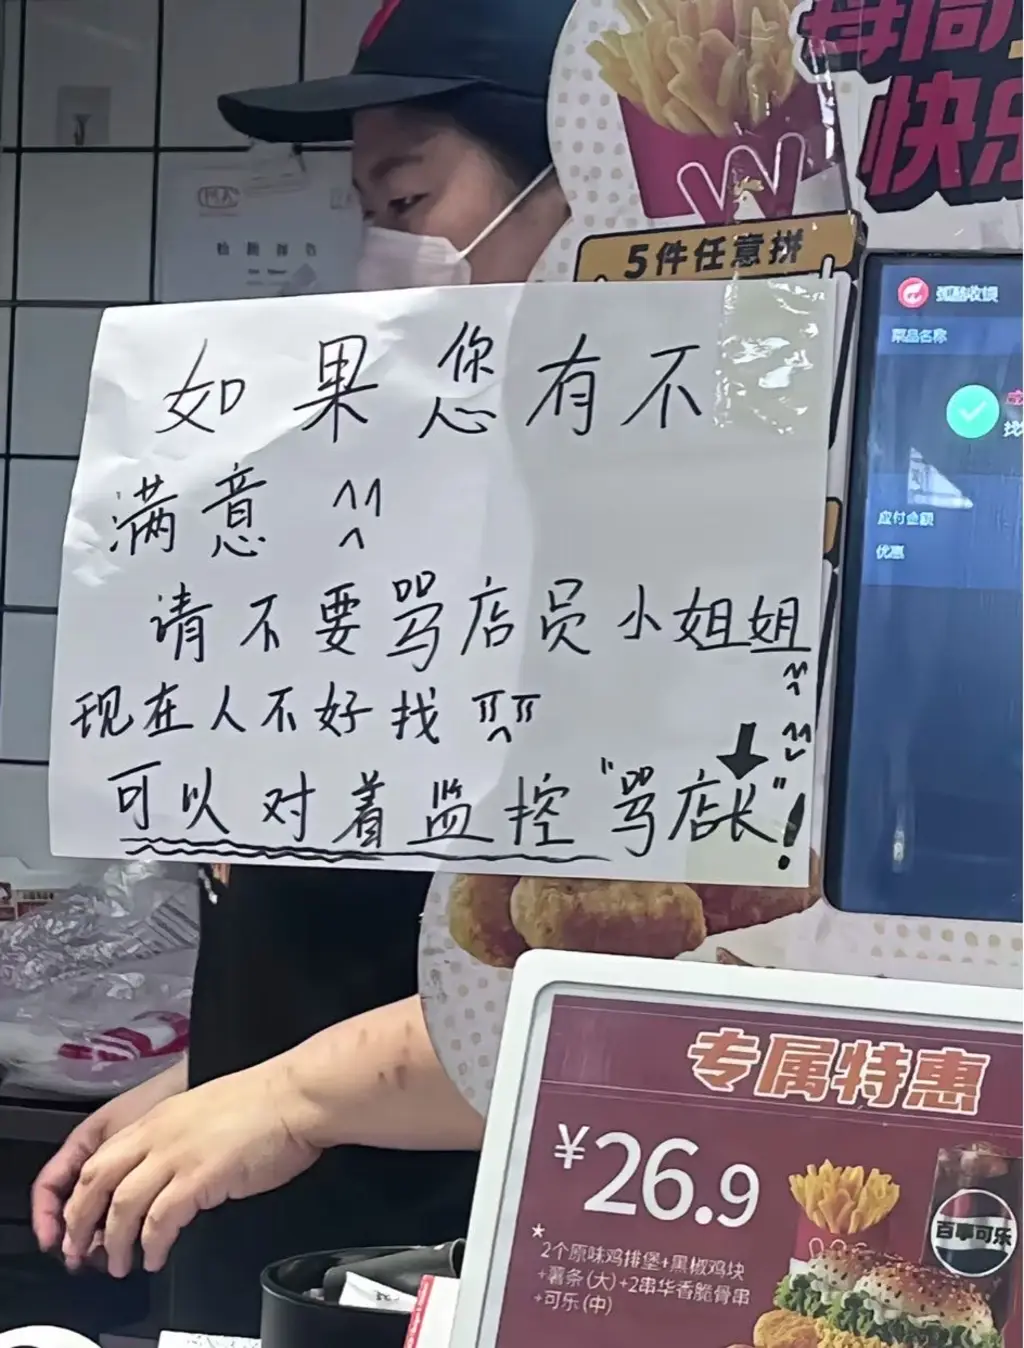 每周
快乐
5件任意拼
如果您有不
满意 ^^
请不要骂店员小姐姐
现在人不好找 TT^TT
可以对着监控"骂店长"!
菜品名称
应付金额
优惠
专属特惠
¥26.9
*2个原味鸡排堡+黑椒鸡块
+薯条(大)+2串华香脆骨串
+可乐(中)
百事可乐